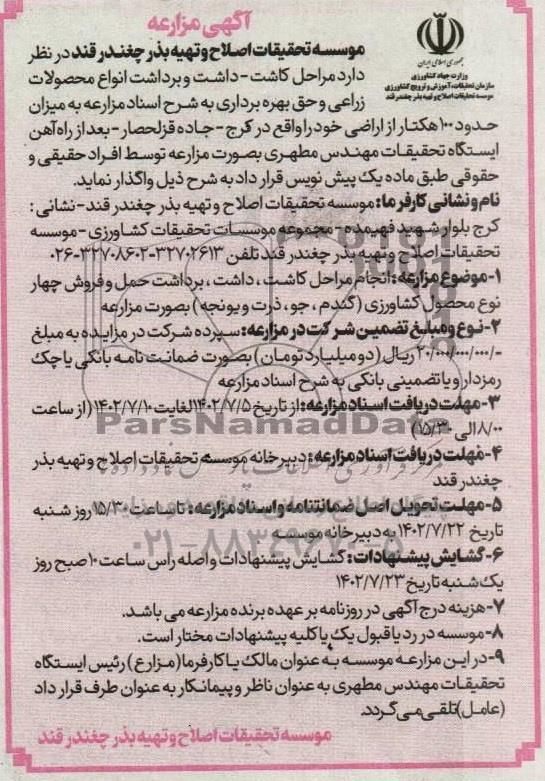 آگهی مزارعه
جمهوری اسلامی ایران
وزارت جهاد کشاورزی
سازمان تحقیقات، آموزش و ترویج کشاورزی
موسسه تحقیقات اصلاح و تهیه بذر چغندر قند
موسسه تحقیقات اصلاح و تهیه بذر چغندر قند در نظر
دارد مراحل کاشت - داشت و برداشت انواع محصولات
زراعی و حق بهره برداری به شرح اسناد مزارعه به میزان
حدود ۱۰۰ هکتار از اراضی خود را واقع در کرج - جاده قزلحصار - بعد از راه آهن
ایستگاه تحقیقات مهندس مطهری بصورت مزارعه توسط افراد حقیقی و
حقوقی طبق ماده یک پیش نویس قرار داد به شرح ذیل واگذار نماید.
نام و نشانی کارفرما: موسسه تحقیقات اصلاح و تهیه بذر چغندر قند - نشانی :
کرج بلوار شهید فهمیده - مجموعه موسسات تحقیقات کشاورزی - موسسه
تحقیقات اصلاح و تهیه بذر چغندر قند تلفن ۳۲۷۰۲۶۱۳-۳۲۷۰۸۶۰۲-۰۲۶
۱- موضوع مزارعه: انجام مراحل کاشت ، داشت ، برداشت حمل و فروش چهار
نوع محصول کشاورزی (گندم ، جو ، ذرت و یونجه ) بصورت مزارعه
۲- نوع و مبلغ تضمین شرکت در مزارعه: سپرده شرکت در مزایده به مبلغ
۲۰/۰۰۰/۰۰۰/۰۰۰/- ریال (دو میلیارد تومان ) بصورت ضمانت نامه بانکی یا چک
رمزدار و یا تضمینی بانکی به شرح اسناد مزارعه
۳- مهلت دریافت اسناد مزارعه: از تاریخ ۱۴۰۲/۷/۵ لغایت ۱۴۰۲/۷/۱۰ (از ساعت
۸/۰۰ الی ۱۵/۳۰)
ParsNamadData
۴- مهلت دریافت اسناد مزارعه : دبیرخانه موسسه تحقیقات اصلاح و تهیه بذر
چغندر قند
۵- مهلت تحویل اصل ضمانتنامه و اسناد مزارعه: تا ساعت ۱۵/۳۰ روز شنبه
تاریخ ۱۴۰۲/۷/۲۲ به دبیرخانه موسسه
۰۲۱-۸۸۳۴۹۶۷۰-۵
۶- گشایش پیشنهادات : گشایش پیشنهادات واصله راس ساعت ۱۰ صبح روز
یک شنبه تاریخ ۱۴۰۲/۷/۲۳
۷- هزینه درج آگهی در روزنامه بر عهده برنده مزارعه می باشد.
۸- موسسه در رد یا قبول یک یا کلیه پیشنهادات مختار است.
۹- در این مزارعه موسسه به عنوان مالک یا کارفرما (مزارع ) رئیس ایستگاه
تحقیقات مهندس مطهری به عنوان ناظر و پیمانکار به عنوان طرف قرار داد
(عامل) تلقی می گردد.
موسسه تحقیقات اصلاح و تهیه بذر چغندر قند